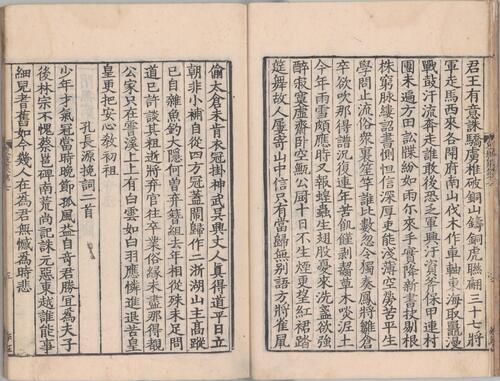 君王有意誅驕虜椎破銅山鑄銅虎聯翩三十七將
軍走馬西來各開府南山伐木作車軸東海取鼉漫
戰鼓汗流奔走誰敢後恐乏軍興汙資斧保甲連村
團未遍方田訟牒紛如雨尔來手實降新書抉剔根
株窮脉縷詔書惻怛信深厚吏能淺薄空勞苦平生
學問止流俗衆裏笙竽誰比數忽令獨奏鳳將雛倉
卒欲吹那得譜况復連年苦飢饉剥齧草木啖泥土
今年雨雪頗應時又報蝗蟲生翅股憂來洗盞欲強
醉寂寞虛齋卧空甒公厨十日不生煙更望紅裙踏
筵舞故人屢寄山中信只有當歸無别語方將雀鼠
偷太倉未肯衣冠掛神武吳興丈人真得道平日立
朝非小補自從四方冠蓋鬧歸作二浙湖山主高蹤
已自雜漁釣大隱何曾弃簪組去年相從殊未足問
道已許談其粗逝將弃官往卒業俗緣未盡那得覩
公家只在霅溪上上有白雲如白羽應憐進退苦皇
皇更把安心教初祖
孔長源挽詞二首
少年才氣冠當時晚節孤風益自奇君勝宜爲夫子
後林宗不愧蔡邕碑南荒尚記誅元惡東越誰能事
細兒耆舊如今幾人在爲君無憾爲時悲
三